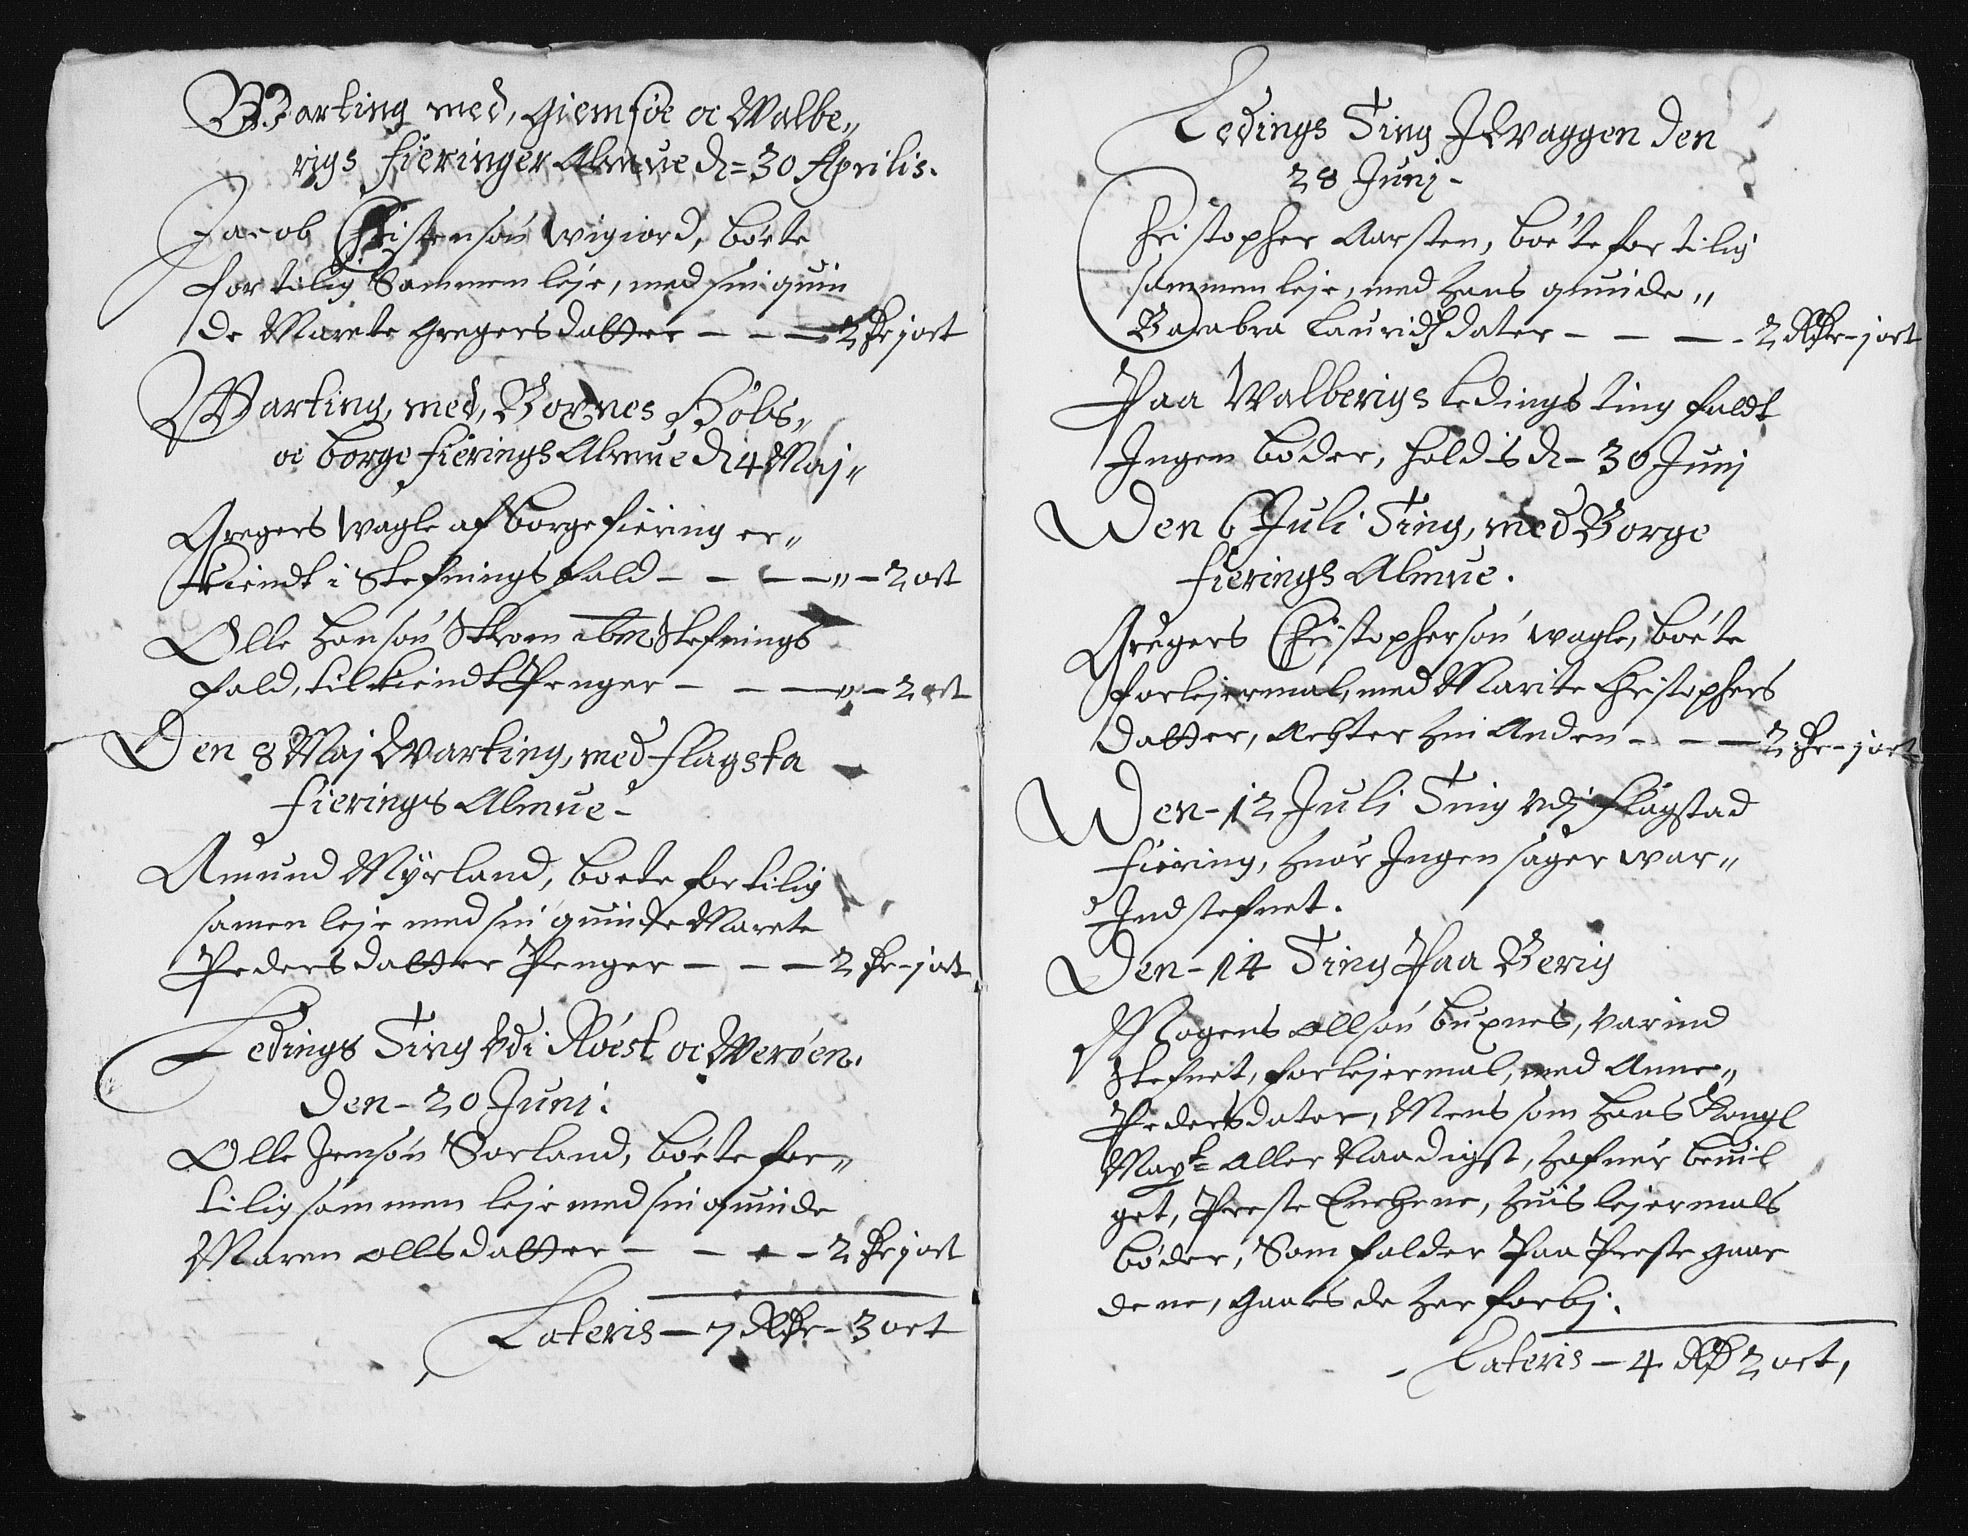 Warting med, Giemsøe oc Walbe„
rigs fieringer Almue dn = 30 Aprilis.
Jacob Christensøn wigiord, bøete
for tilig Sammen leje, med sin quin
de Marete Gregersdatter — — — 2 Rdr 1 ort
Warting, med, Borxnes Høbs„
oc borge fierings Almue dn 4 Maj„
Gregers Wagle af borge fiering er„
kiendt i Stefnings fald — — — „ — 2 ort
Olle Hansøn Skrom ibm Stefnings
fald, tilkiendt Penger — — — „ — 2 ort
Den 8 Maj Warting, med flagsta
fierings Almue —
Amund Myrland, boete for tilig
samen leje med sin quinde Marete
Pedersdatter Penger — — — 2 Rdr — 1 ort
Ledings Ting Vdi Røest oc Werøen.
Den — 20 Junj.
Olle Jensøn Sorland, bøete for„
tilig sammen leje med sin quinde
Maren Ollsdatter — — — 2 Rdr 1 ort
Lateris — 7 Rdr — 3 ort
Ledings Ting J Waggen den
28 Junj —
Christopher Aarsten, boete for tilig
sammen leje, med hans quinde„
Barabra Lauridsdater — — — 2 Rdr — 1 ort
Paa Walberigs Ledings ting faldt
Ingen bøder, holdis dn — 30 Junj
Den 6 Juli Ting, med Borge
fierings Almue.
Gregers Christophersøn wagle, boete
for lejermal, med Marite Christophers
datter, Achter hin Anden — — — 2 Rdr — 1 ort
Den — 12 Julj Ting Vdj Flagstad
fiering, huor Ingen sager war„
Indstefnet.
Den — 14 Ting Paa Berig
Mogens Ollsøn buxnes, var ind
Stefnet, for lejermal, med Anne„
Pedersdater, Mens som Hans Kongl
Mayt: Aller Naadigst, hafuer beuil
get, Preste Enchene, huis lejermals
bøder, Som falder Paa Preste gaar
dene, gaaes de her forbj.
Lateris — 4 Rd 2 ort,